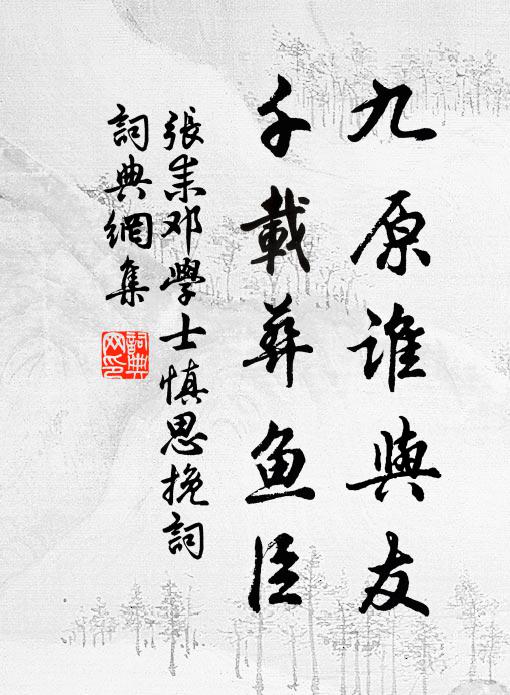 九原谁與友
千載葬鱼臣
張耒邓學士慎思挽詞
詞典網集
詞典网印